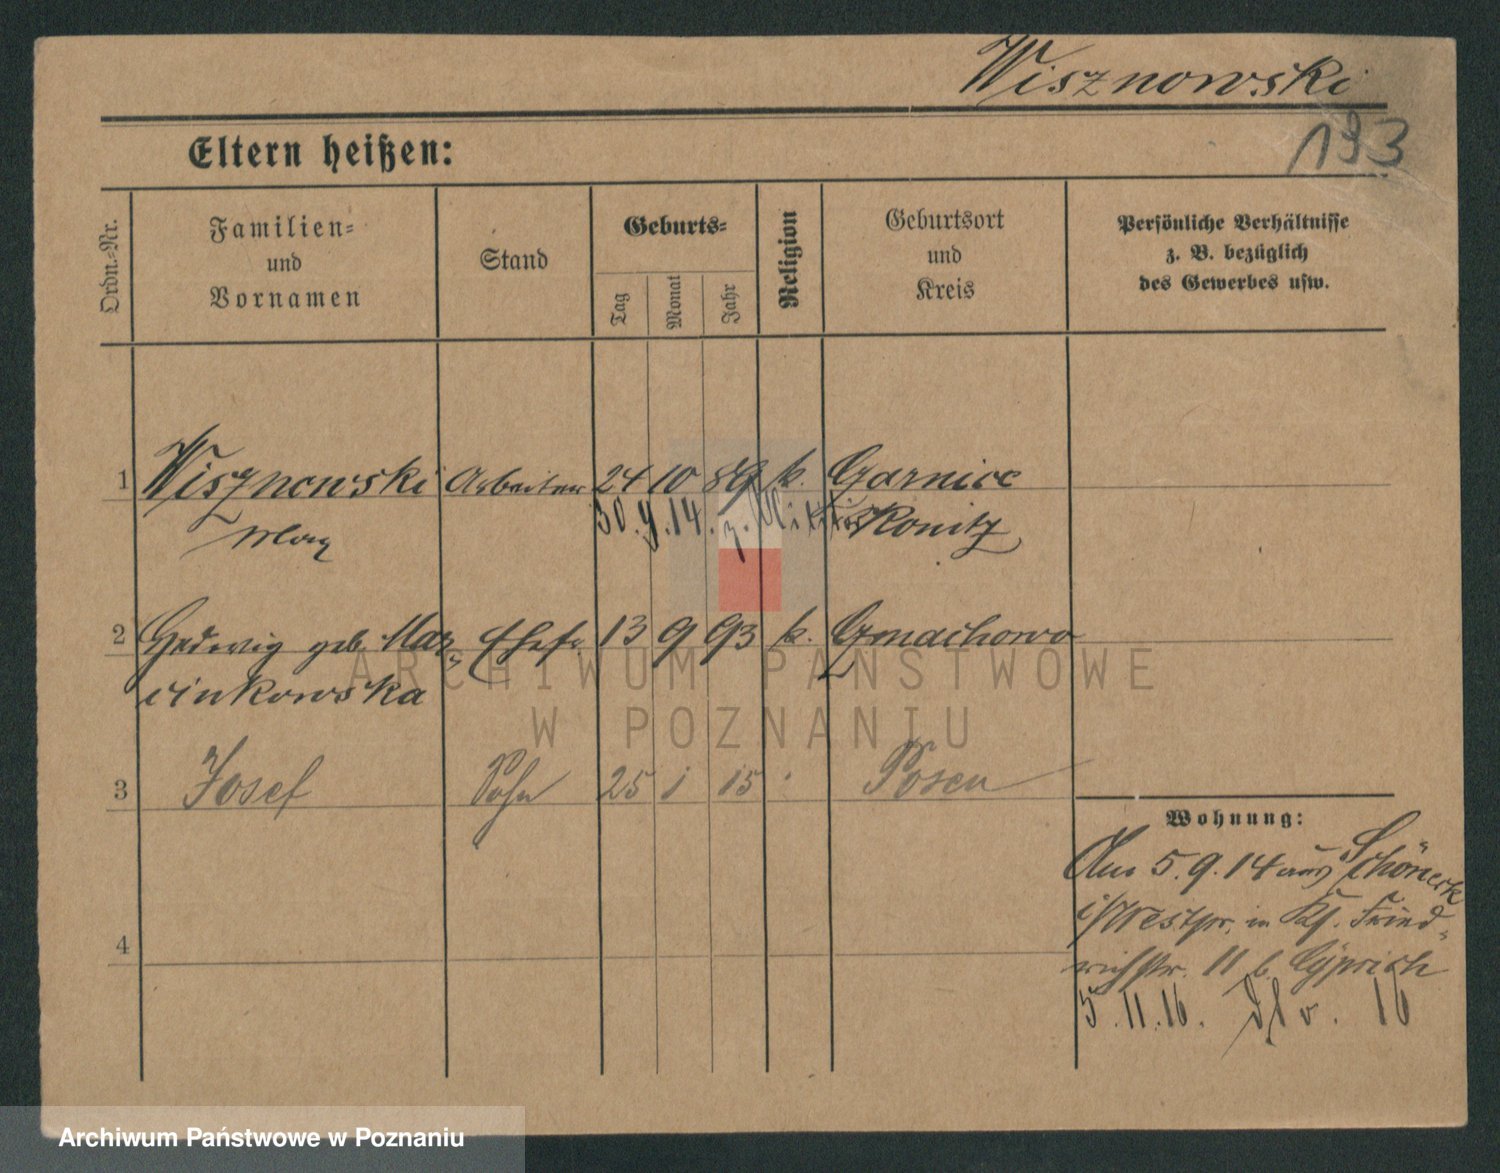 Wisznowski
193
Eltern heißen:
Ordn.-Nr.
Familien-
und
Vornamen
Stand
Geburts-
Tag
Monat
Jahr
Religion
Geburtsort
und
Kreis
Persönliche Verhältnisse
z. B. bezüglich
des Gewerbes usw.
1 Wisznowski Arbeiter 24 10 89 k. Garnice
Max 30.9.14. z. Militär Konitz
2 Hedwig geb. Mar- Ehefr. 13 9 93 k. Gmachowo
cinkowska
3 Josef Sohn 25 1 15 Posen
4
Wohnung:
Am 5.9.14 aus Schöneck
i/Westpr. in Kf. Fried-
richstr. 11 b.
5.11.16. 16
ARCHIWUM PAŃSTWOWE
W POZNANIU
Archiwum Państwowe w Poznaniu